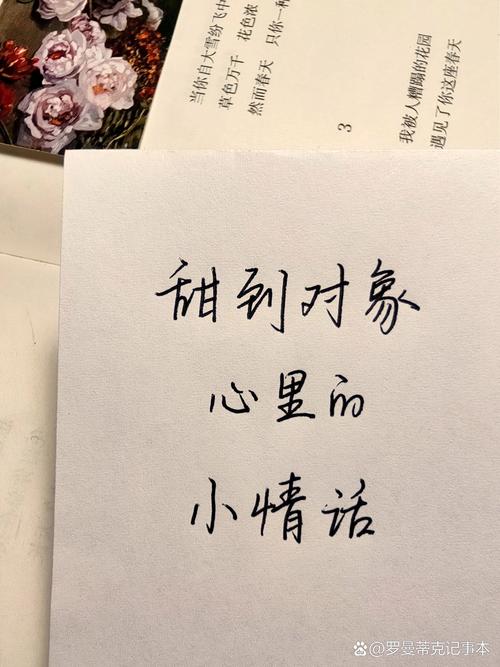 当你自大雪纷飞中
草色万千 花色浓
然而春天 只你一种
3
我被人糟蹋的花园
遇见了你这座春天
甜到对象
心里的
小情话
@罗曼蒂克记事本